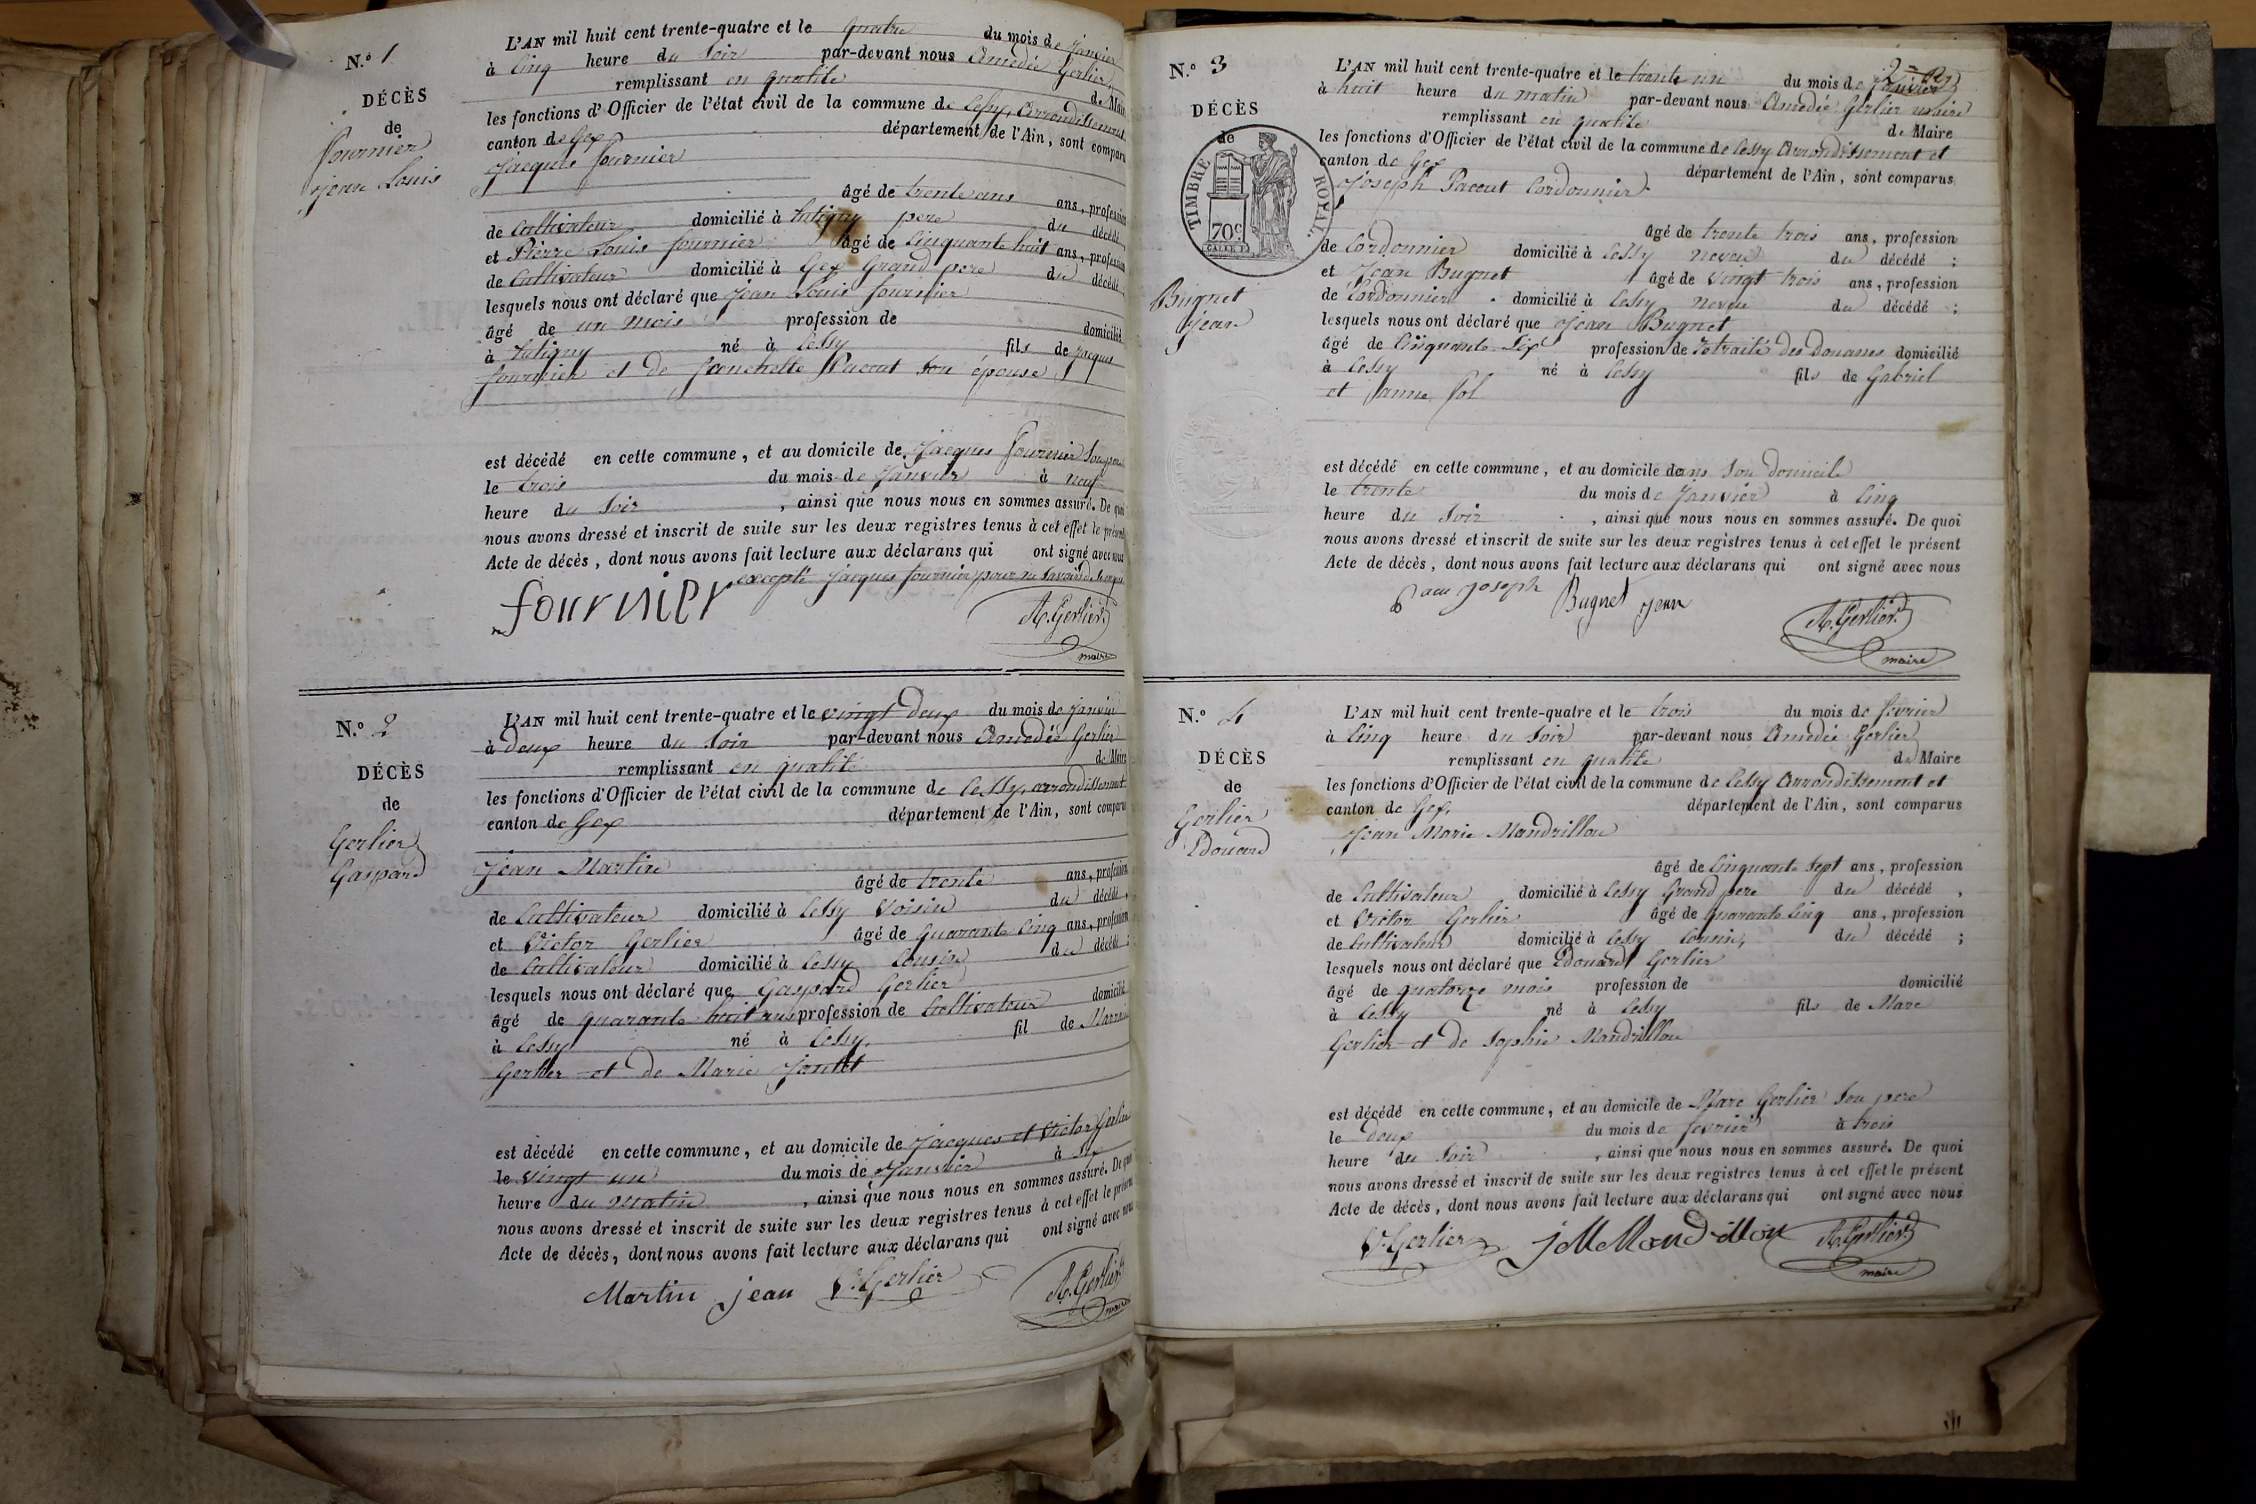 N.º 1
DÉCÈS
de
fournier
jean Louis
L'AN mil huit cent trente-quatre et le quatre du mois de janvier
à cinq heure du soir par-devant nous Amedée Gerlier
remplissant en qualité de Maire
les fonctions d'Officier de l'état civil de la commune de Cessy, arrondissement
canton de Gex département de l'Ain, sont comparu
jacques fournier
âgé de trente ans ans, profession
de Cultivateur domicilié à pere du décédé
et Pierre Louis fournier âgé de cinquante huit ans, profession
de Cultivateur domicilié à Gex Grand pere du décédé
lesquels nous ont déclaré que jean Louis fournier
âgé de un mois profession de domicilié
à né à Cessy fils de jacques
fournier et de franchette Pacout son épouse
est décédé en cette commune, et au domicile de jacques fournier son pere
le trois du mois de janvier à neuf
heure du soir , ainsi que nous nous en sommes assuré. De quoi
nous avons dressé et inscrit de suite sur les deux registres tenus à cet effet le présent
Acte de décès, dont nous avons fait lecture aux déclarans qui ont signé avec nous
excepté jacques fournier pour ne savoir de ce requis
fournier
A. Gerlier
maire
N.º 2
DÉCÈS
de
Gerlier
Gaspard
L'AN mil huit cent trente-quatre et le vingt deux du mois de janvier
à deux heure du soir par-devant nous Amedée Gerlier
remplissant en qualité de Maire
les fonctions d'Officier de l'état civil de la commune de Cessy, arrondissement
canton de Gex département de l'Ain, sont comparu
jean Martin
âgé de trente ans, profession
de Cultivateur domicilié à Cessy voisin du décédé,
et Victor Gerlier âgé de quarante cinq ans, profession
de Cultivateur domicilié à Cessy Cousin du décédé;
lesquels nous ont déclaré que Gaspard Gerlier
âgé de quarante huit ans profession de Cultivateur domicilié
à Cessy né à Cessy, fil de
Gerlier et de Marie
est décédé en cette commune, et au domicile de jacques et Victor Gerlier
le vingt un du mois de janvier à six
heure du matin , ainsi que nous nous en sommes assuré. De quoi
nous avons dressé et inscrit de suite sur les deux registres tenus à cet effet le présent
Acte de décès, dont nous avons fait lecture aux déclarans qui ont signé avec nous
Martin jean V. Gerlier A. Gerlier
maire
N.º 3
DÉCÈS
de
TIMBRE ROYAL.
70c
Bugnet
jean
L'AN mil huit cent trente-quatre et le trente un du mois de janvier
à huit heure du matin par-devant nous Amedée Gerlier maire
remplissant en qualité de Maire
les fonctions d'Officier de l'état civil de la commune de Cessy arrondissement et
canton de Gex département de l'Ain, sont comparus
Joseph Pacout Cordonnier
âgé de trente trois ans, profession
de Cordonnier domicilié à Cessy neveu du décédé ;
et jean Bugnet âgé de vingt trois ans, profession
de Cordonnier domicilié à Cessy neveu du décédé ;
lesquels nous ont déclaré que jean Bugnet
âgé de cinquante six profession de retraité des Douanes domicilié
à Cessy né à Cessy fils de Gabriel
et janne fol
est décédé en cette commune, et au domicile dans son domicile
le trente du mois de janvier à cinq
heure du soir , ainsi que nous nous en sommes assuré. De quoi
nous avons dressé et inscrit de suite sur les deux registres tenus à cet effet le présent
Acte de décès, dont nous avons fait lecture aux déclarans qui ont signé avec nous
joseph Bugnet jean A. Gerlier
maire
N.º 4
DÉCÈS
de
Gerlier
Edouard
L'AN mil huit cent trente-quatre et le trois du mois de fevrier
à cinq heure du soir par-devant nous Amedée Gerlier
remplissant en qualité de Maire
les fonctions d'Officier de l'état civil de la commune de Cessy arrondissement et
canton de Gex, département de l'Ain, sont comparus
jean Marie Mandrillon
âgé de cinquante sept ans, profession
de Cultivateur domicilié à Cessy Grand pere du décédé ,
et Victor Gerlier âgé de quarante cinq ans, profession
de Cultivateur domicilié à Cessy Cousin, du décédé ;
lesquels nous ont déclaré que Edouard Gerlier
âgé de quatorze mois profession de domicilié
à Cessy né à Cessy fils de Marc
Gerlier et de Sophie Mandrillon
est décédé en cette commune, et au domicile de Marc Gerlier son pere
le deux du mois de fevrier à trois
heure du soir , ainsi que nous nous en sommes assuré. De quoi
nous avons dressé et inscrit de suite sur les deux registres tenus à cet effet le présent
Acte de décès, dont nous avons fait lecture aux déclarans qui ont signé avec nous
V. Gerlier j M Mandrillon A. Gerlier
maire